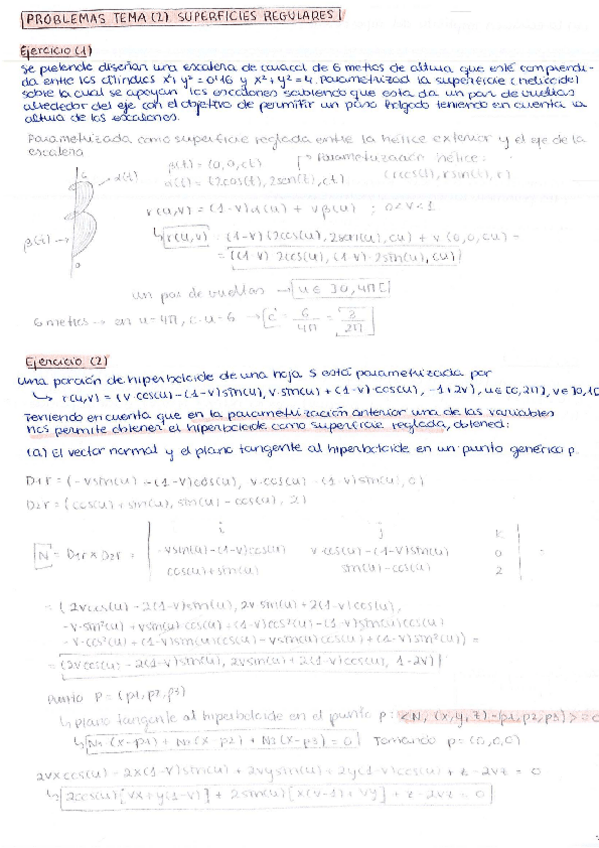 PROBLEMAS TEMA (2). SUPERFICIES REGULARES
Ejercicio (1)
Se pretende diseñar una escalera de caracol de 6 metros de altura que esté comprendi-
da entre los cilindros x²+y²=0'16 y x²+y²=4. Parametrizad la superficie (helicoide)
sobre la cual se apoyan los escalones sabiendo que esta da un par de vueltas
alrededor del eje con el objetivo de permitir un paso holgado teniendo en cuenta la
altura de los escalones.
Parametrizada como superficie reglada entre la hélice exterior y el eje de la
escalera
β(t) = (0,0,ct)
Parametrización hélice:
α(t) = (2cos(t), 2sen(t), ct)
(rcos(t), rsin(t), )
α(t)
β(t)
r(u,v) = (1-v)α(u) + vβ(u) ; 0<v<1
r(u,v) = (1-v)(2cos(u), 2sen(u), cu) + v(0,0,cu) =
= ((1-v)·2cos(u), (1-v)·2sin(u), cu)
un par de vueltas → u ∈ ]0,4π[
6 metros → en u=4π, c·u=6 → c = 6/4π = 3/2π
Ejercicio (2)
Una porción de hiperboloide de una hoja S está parametrizada por
r(u,v) = (v·cos(u)-(1-v)sin(u), v·sin(u)+(1-v)·cos(u), -1+2v), u∈[0,2π[, v∈]0,1[
Teniendo en cuenta que en la parametrización anterior una de las variables
nos permite obtener el hiperboloide como superficie reglada, obtened:
(a) El vector normal y el plano tangente al hiperboloide en un punto genérico p.
D₁r = (-vsin(u)-(1-v)cos(u), v·cos(u)-(1-v)sin(u), 0)
D₂r = (cos(u)+sin(u), sin(u)-cos(u), 2)
i j k
N = D₁r × D₂r = -vsin(u)-(1-v)cos(u) v·cos(u)-(1-v)sin(u) 0 =
cos(u)+sin(u) sin(u)-cos(u) 2
= (2vcos(u)-2(1-v)sin(u), 2v sin(u)+2(1-v)cos(u),
-v·sin²(u)+vsin(u)·cos(u)-(1-v)·cos(u)·sin(u)+(1-v)cos²(u)
-v·cos²(u)+(1-v)sin(u)cos(u)-vsin(u)cos(u)+(1-v)sin²(u)) =
= (2vcos(u)-2(1-v)sin(u), 2vsin(u)+2(1-v)cos(u), 1-2v)
Punto p = (p1,p2,p3)
plano tangente al hiperboloide en el punto p: <N, (x,y,z)-(p1,p2,p3)> = 0
N₁·(x-p1) + N₂(x-p2) + N₃(x-p3) = 0 Tomando p=(0,0,0)
2vxcos(u) - 2x(1-v)sin(u) + 2vysin(u) + 2y(1-v)cos(u) + z - 2vz = 0
2cos(u)[vx+y(1-v)] + 2sin(u)[x(v-1)+vy] + z - 2vz = 0